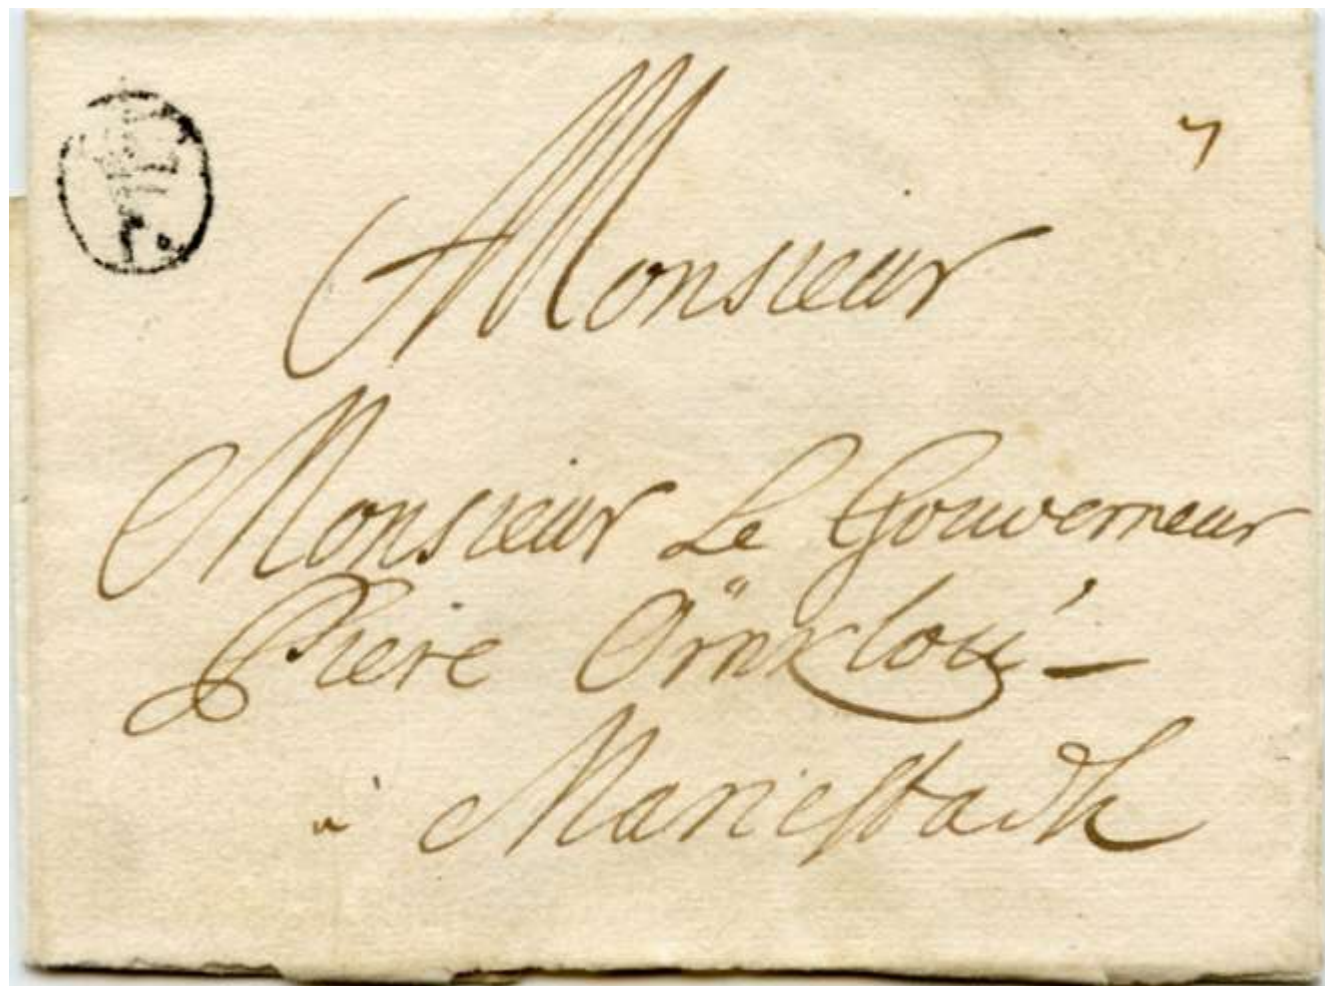 7
Monsieur
Monsieur Le Gouverneur
Piere Örnklou –
à Mariestadh